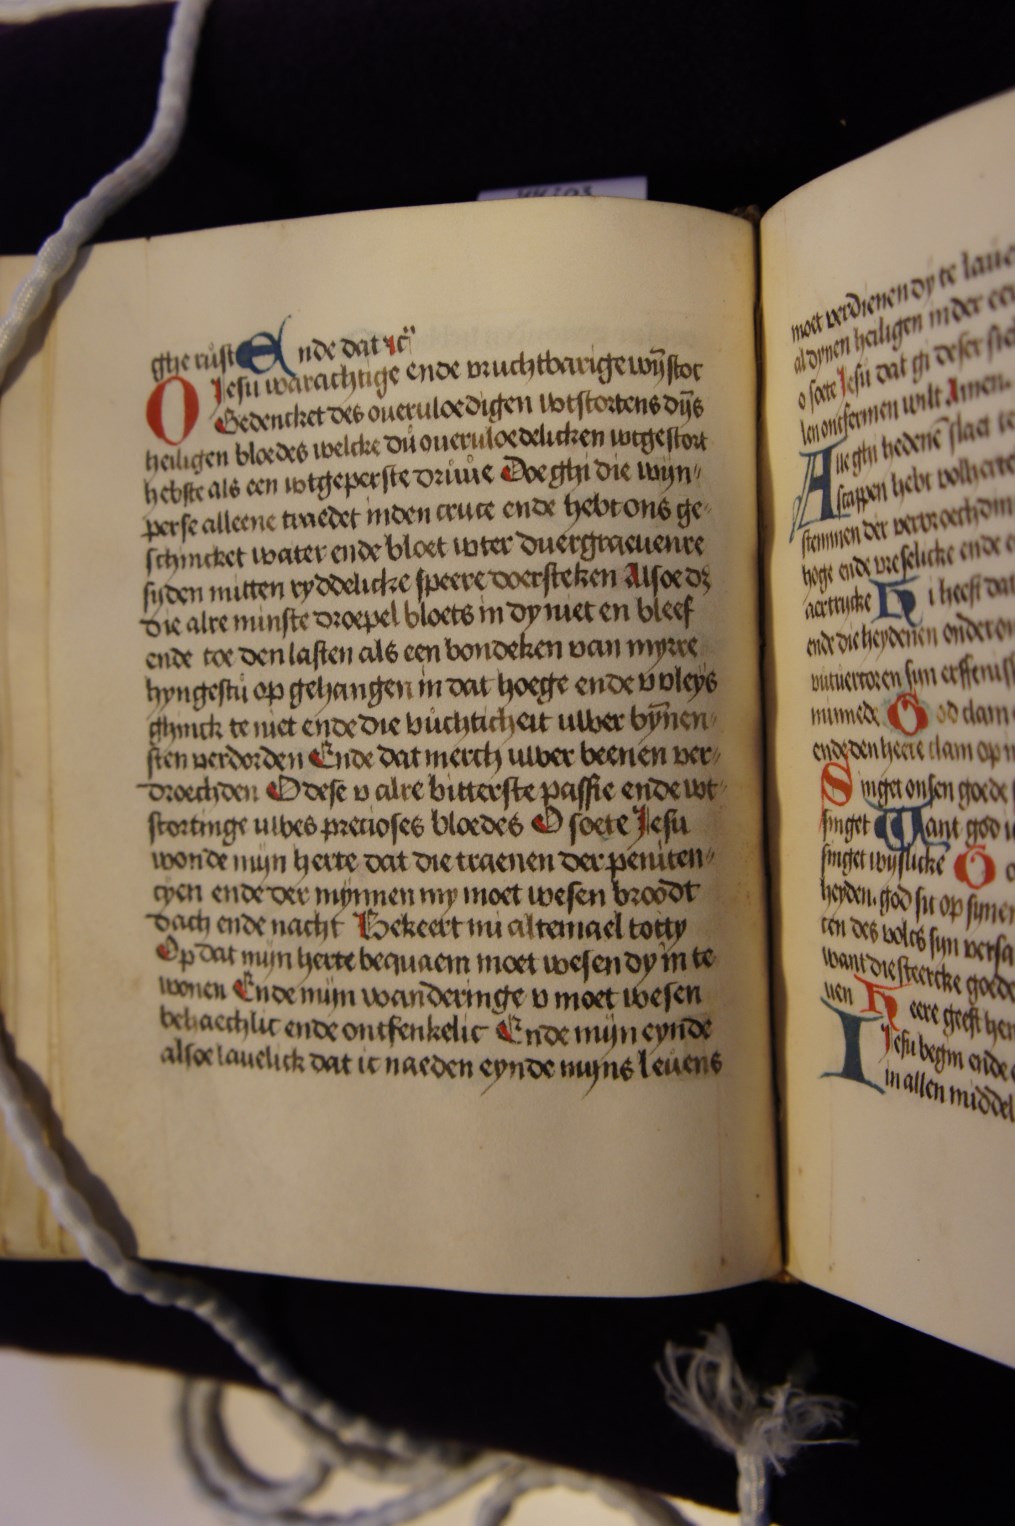 ghe rust Ende dat ic
O Jesu warachtige ende vruchtbarige wȳstoc
Gedencket des oueruloedigen wtstortens dijs
heiligen bloedes welcke dů oueruloedelicken wtgestort
hebste als een wtgeperste druue Doe ghi die wijn
perse alleene traedet inden cruce ende hebt ons ge
schincket water ende bloet wter duergraeuenre
sijden mitten ryddelicke speere doersteken Alsoe dz
die alre minste droepel bloets in dy niet en bleef
ende toe den lasten als een bondeken van myrre
hyngestu op gehangen in dat hoege ende v vleys
ghinck te niet ende die vuchticheit ulver bȳnen
sten verdorden Ende dat merch ulver beenen ver
droechden O dese v alre bitterste passie ende wt
stortinge ulves precioses bloedes O soete Jesu
wonde mijn herte dat die traenen der peniten
cyen ende der mynnen my moet wesen broodt
dach ende nacht Bekeert mi altemael totty
Op dat mijn herte bequaem moet wesen dy in te
wonen Ende mijn wanderinge v moet wesen
behaechlic ende ontfenkelic Ende mijn eynde
alsoe lauelick dat ic naeden eynde mijns leuens
moet verdienen dy te laue
al dynen heiligen in der ee
o soete Jesu dat gi deser sie
len ontfermen wilt Amen.
Alle ghi hedenē slaet te
scappen hebt volherte
stemmen der vervroechdin
hoge ende vreselicke ende
aertrijcke Hi heeft dat
ende die heydenen onder on
vutuertoren sijn erffenis
minnede God clam
ende den heere clam op
Singet onsen goede
singet Want god
singet wijslicke O
heyden. god sit op sijnen
ten des volcs sijn versa
want die steercke goede
uen Heere geeft hen
I Jesu begin ende
in allen middel